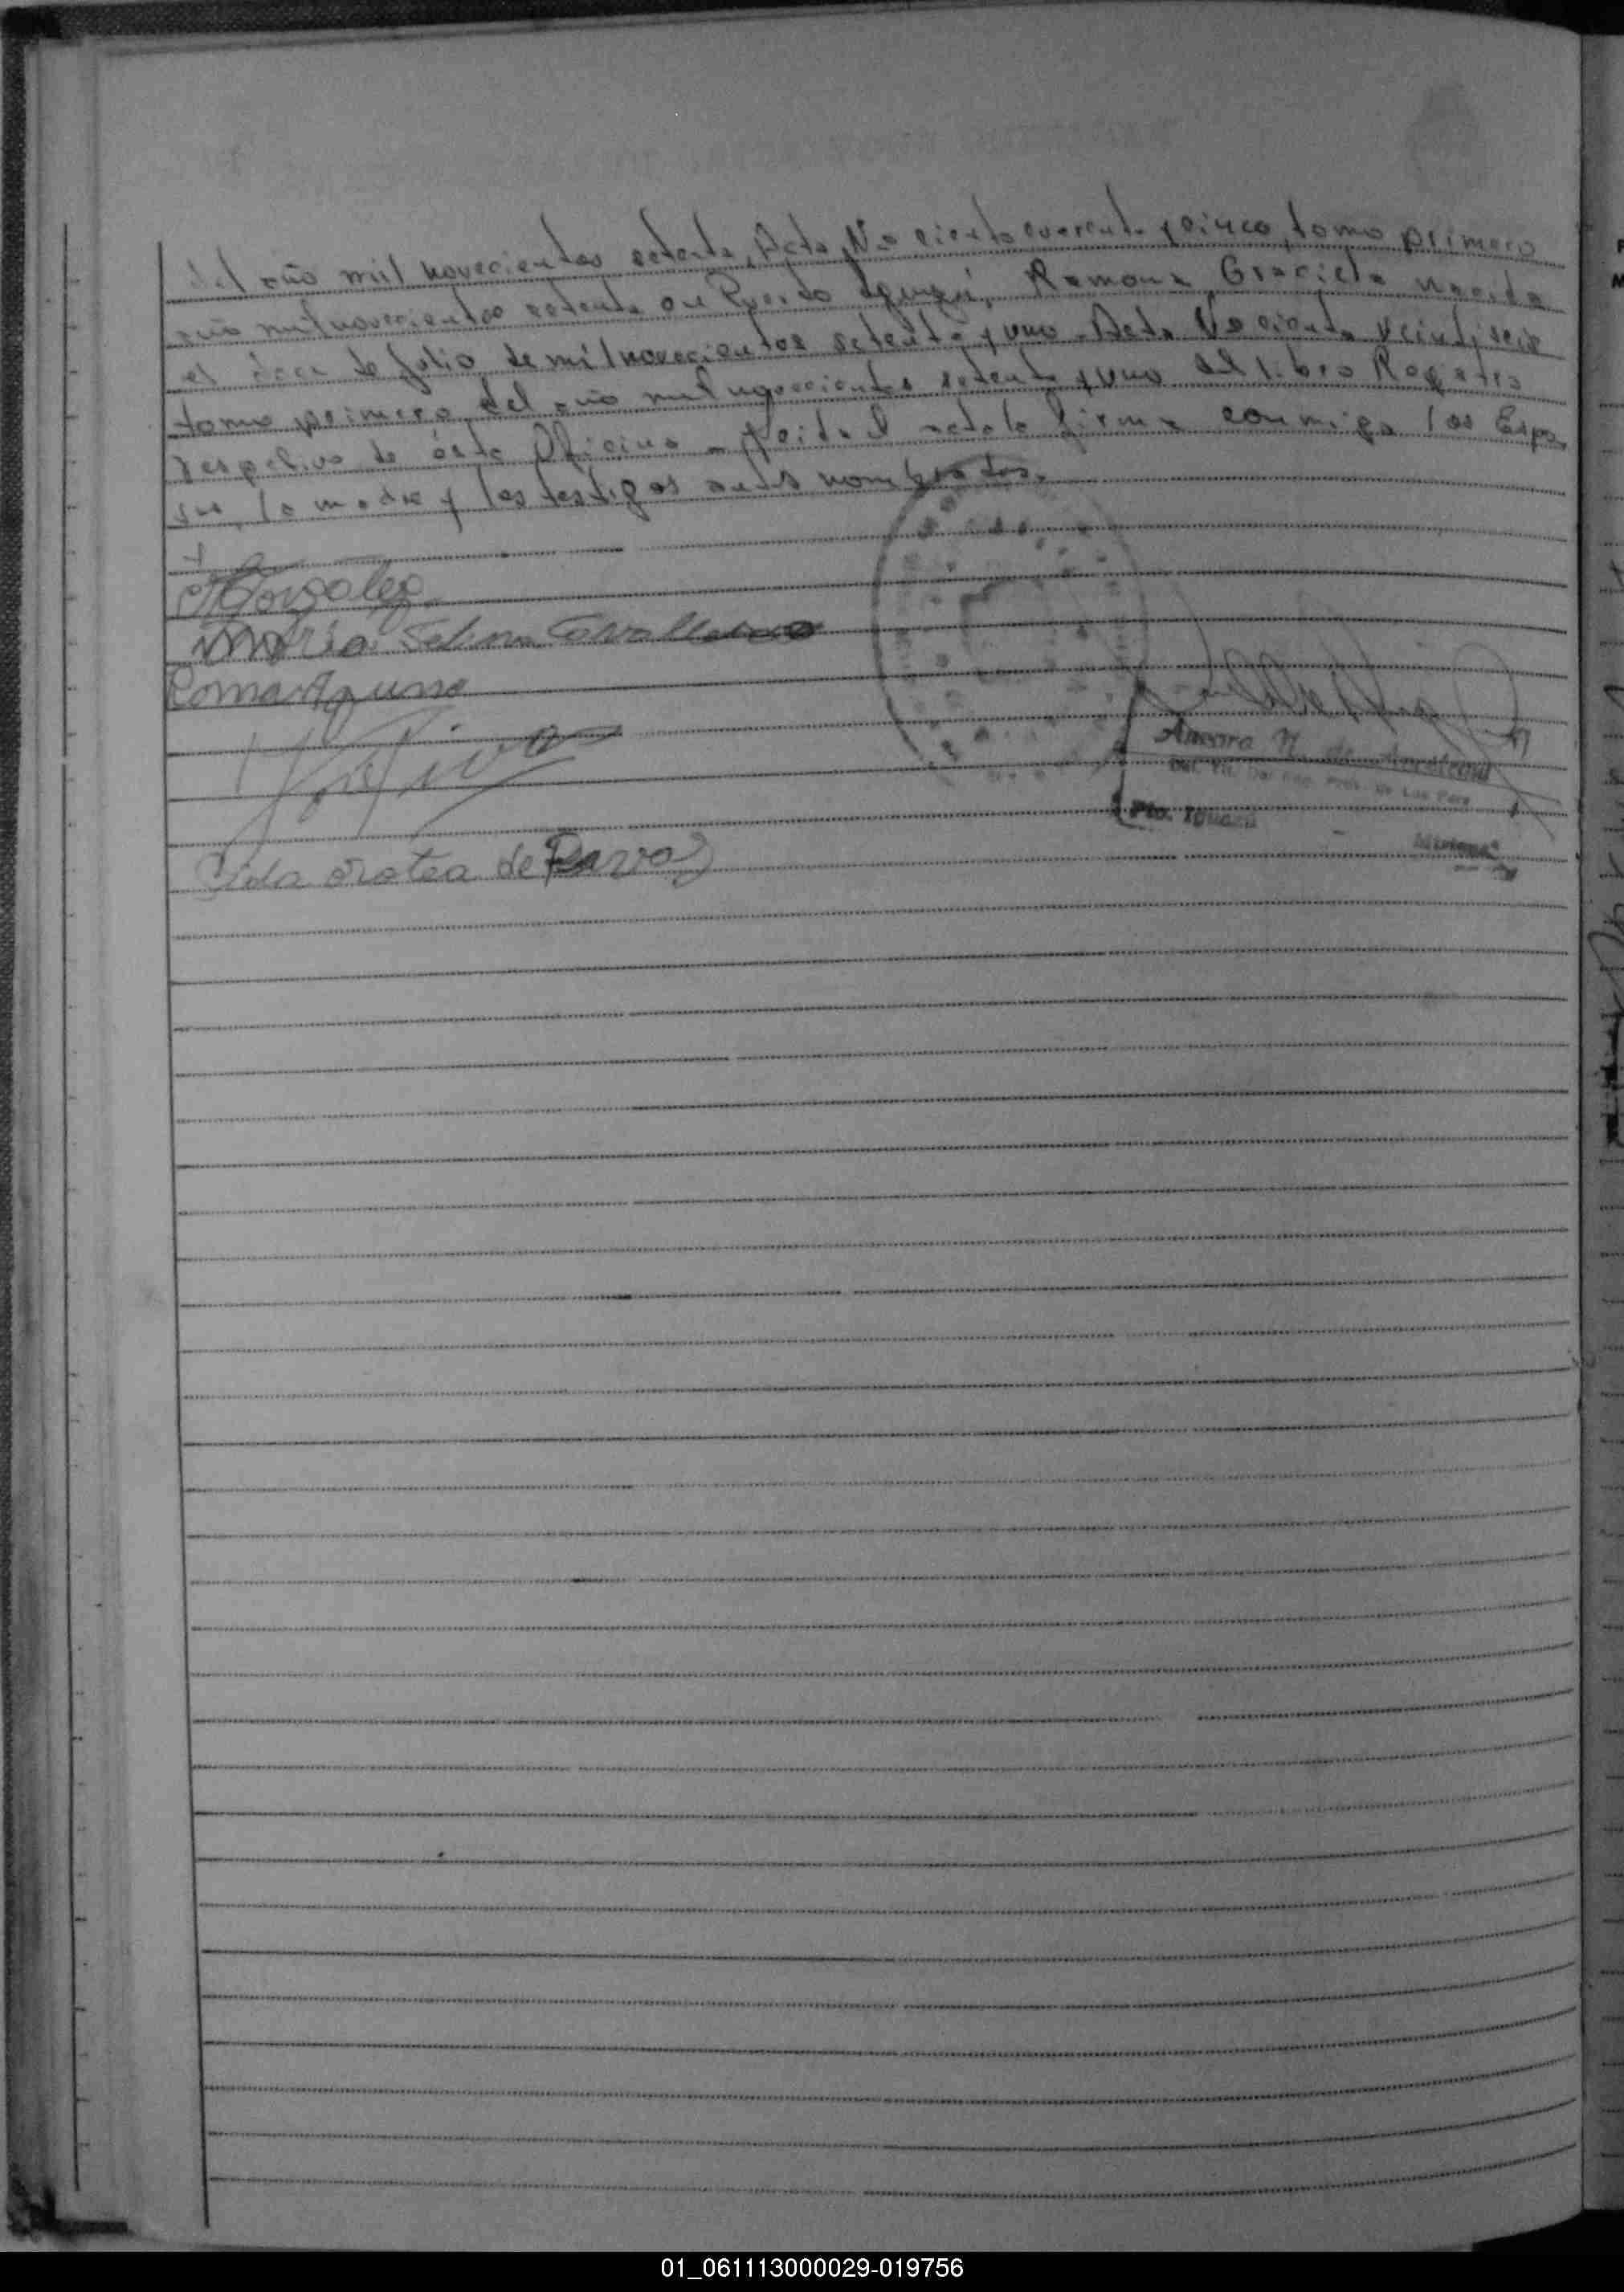 del año mil novecientos setenta, Acta No ciento cuarenta y cinco, tomo primero
año mil novecientos setenta en Puerto Iguazú, Ramona Graciela nacida
el doce de Julio de mil novecientos setenta y uno - Acta No ciento veintiseis
tomo primero del año mil novecientos setenta y uno del libro Registro
respetivo de ésta Oficina - Leida el acta la firman conmigo los Espo
sos, la madre y los testigos antes nombrados.
Gonzalez
María Selina
Roman
Aida orotea de
Ancora N. de
Pto. Iguazú
Misiones
01_061113000029-019756